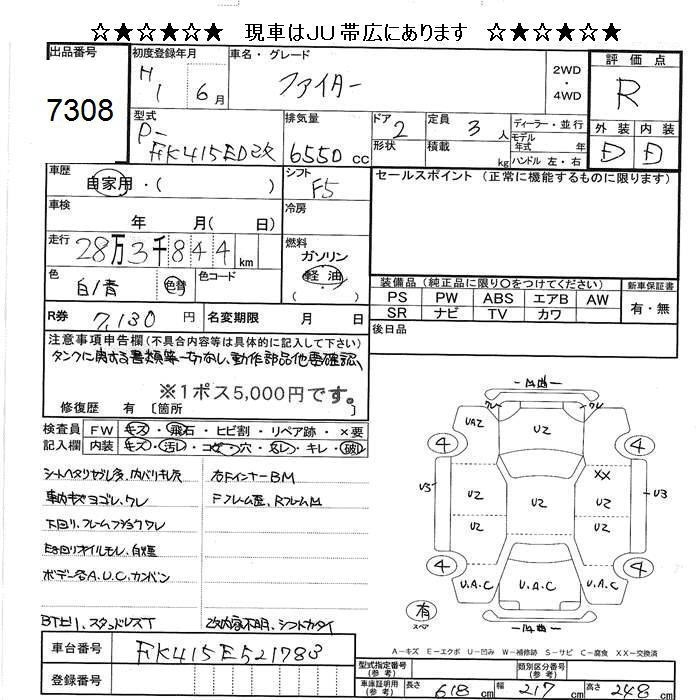 ☆★☆★☆★ 現車はJU帯広にあります ☆★☆★☆★
出品番号
7308
初度登録年月
H1 6月
車名・グレード
ファイター
2WD
4WD
評価点
R
型式
P-
FK415ED改
排気量
6550 cc
ドア 2
形状
定員 3 人
積載 kg
ディーラー・並行
モデル年式 年
ハンドル 左・右
外装 内装
D D
車歴
自家用・( )
シフト
F5
セールスポイント (正常に機能するものに限ります)
車検
年 月( 日)
冷房
走行
28万3千844 km
燃料
ガソリン
軽油
( )
色
白/青
色替
色コード
装備品 (純正品に限り○をつけてください)
新車保証書
PS PW ABS エアB AW
SR ナビ TV カワ
有・無
R券 7,130 円
名変期限 月 日
後日品
注意事項申告欄(不具合内容等は具体的に記入して下さい)
タンクに関する書類等一切なし、動作部品他要確認、
※1ポス5,000円です。
修復歴 有 [箇所 ]
検査員記入欄
FW キズ・飛石・ヒビ割・リペア跡・×要
内装 キズ・汚レ・コゲ・穴・スレ・キレ・破レ
シートヘタリヤブレ多、内バリキレ穴
車内キズヨゴレ、ワレ
下回リ、フレームフショクワレ
E廻リオイルモレ、白煙
ボデー各A.U.C.カンバン
BT上リ、スタッドレスT
右FインナーBM
Fフレーム歪、RフレームM
改内容不明、シフトカタイ
ワレ ワレ
UAZ UZ
4 4
XX
U3 UZ UZ U3
UZ UZ
4 4
U.A.C U.A.C U.A.C
有
スペア
A−キズ E−エクボ U−凹み W−補修跡 S−サビ C−腐食 XX−交換済
車台番号
FK415E521783
登録番号
型式指定番号
(参考)
類別区分番号
(参考)
車庫証明用
(参考)
長さ 618 cm 幅 217 cm 高さ 248 cm